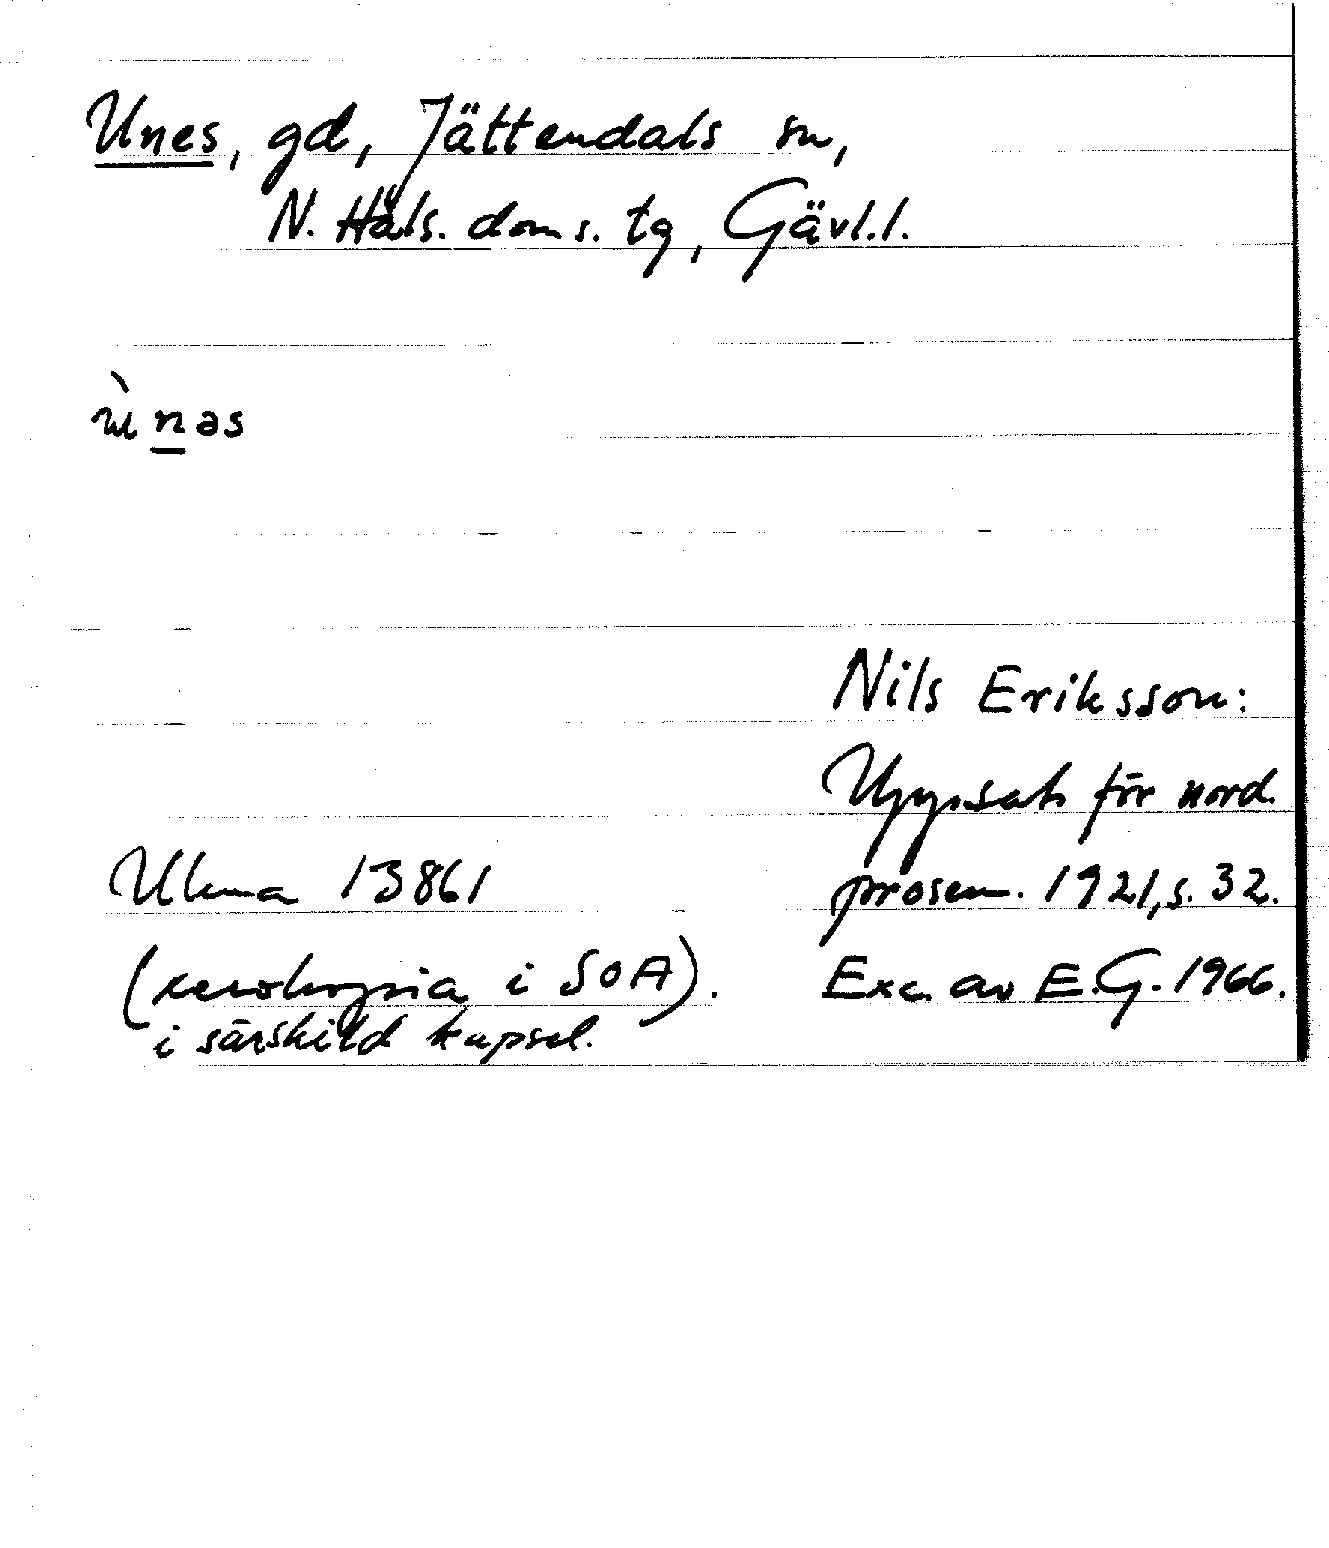 Unes, gd, Jättendals sn,
N. Häls. doms. tg, Gävl.l.
ùnəs
Nils Eriksson:
Uppsats för nord.
prosem. 1921, s. 32.
Ulma 13861
(xerokopia i SOA).
i särskild kapsel.
Exc. av E.G. 1966.